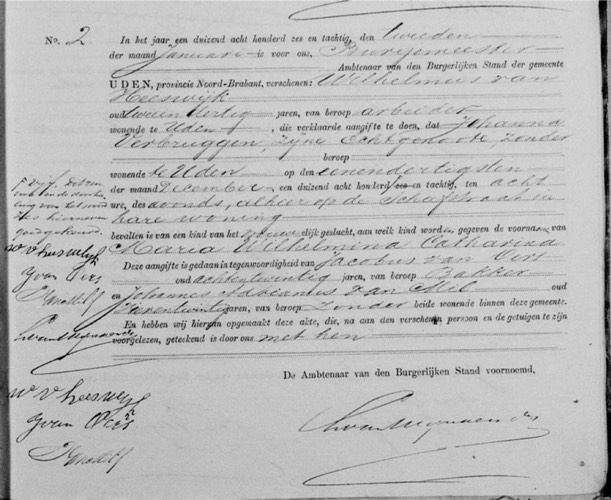 No. 2
In het jaar een duizend acht honderd zes en tachtig, den tweeden
der maand Januari is voor ons, Burgemeester
Ambtenaar van den Burgerlijken Stand der gemeente
UDEN, provincie Noord-Brabant, verschenen: Wilhelmus van
Heeswijk
oud twee en dertig jaren, van beroep arbeider
wonende te Uden, die verklaarde aangifte te doen, dat Johanna
Verbruggen, zijne Echtgenoote zonder
beroep
wonende te Uden op den eenendertigsten
der maand December een duizend acht honderd zes en tachtig, ten acht
ure, des avonds, alhier op de Schafstraat in
hare woning
bevallen is van een kind van het vrouwelijk geslacht, aan welk kind worden gegeven de voornamen van
Maria Wilhelmina Catharina
Deze aangifte is gedaan in tegenwoordigheid van Jacobus van Oers
oud achtentwintig jaren, van beroep Bakker
en Johannes Adrianus van Mil oud
jaren, van beroep zonder beide wonende binnen deze gemeente.
En hebben wij hiervan opgemaakt deze akte, die, na aan den verschenen persoon en de getuigen te zijn
voorgelezen, geteekend is door ons met hen
De Ambtenaar van den Burgerlijken Stand voornoemd,
vijf
goedgekeurd.
W v heeswijk
J van Oers
W v heeswijk
J van Oers